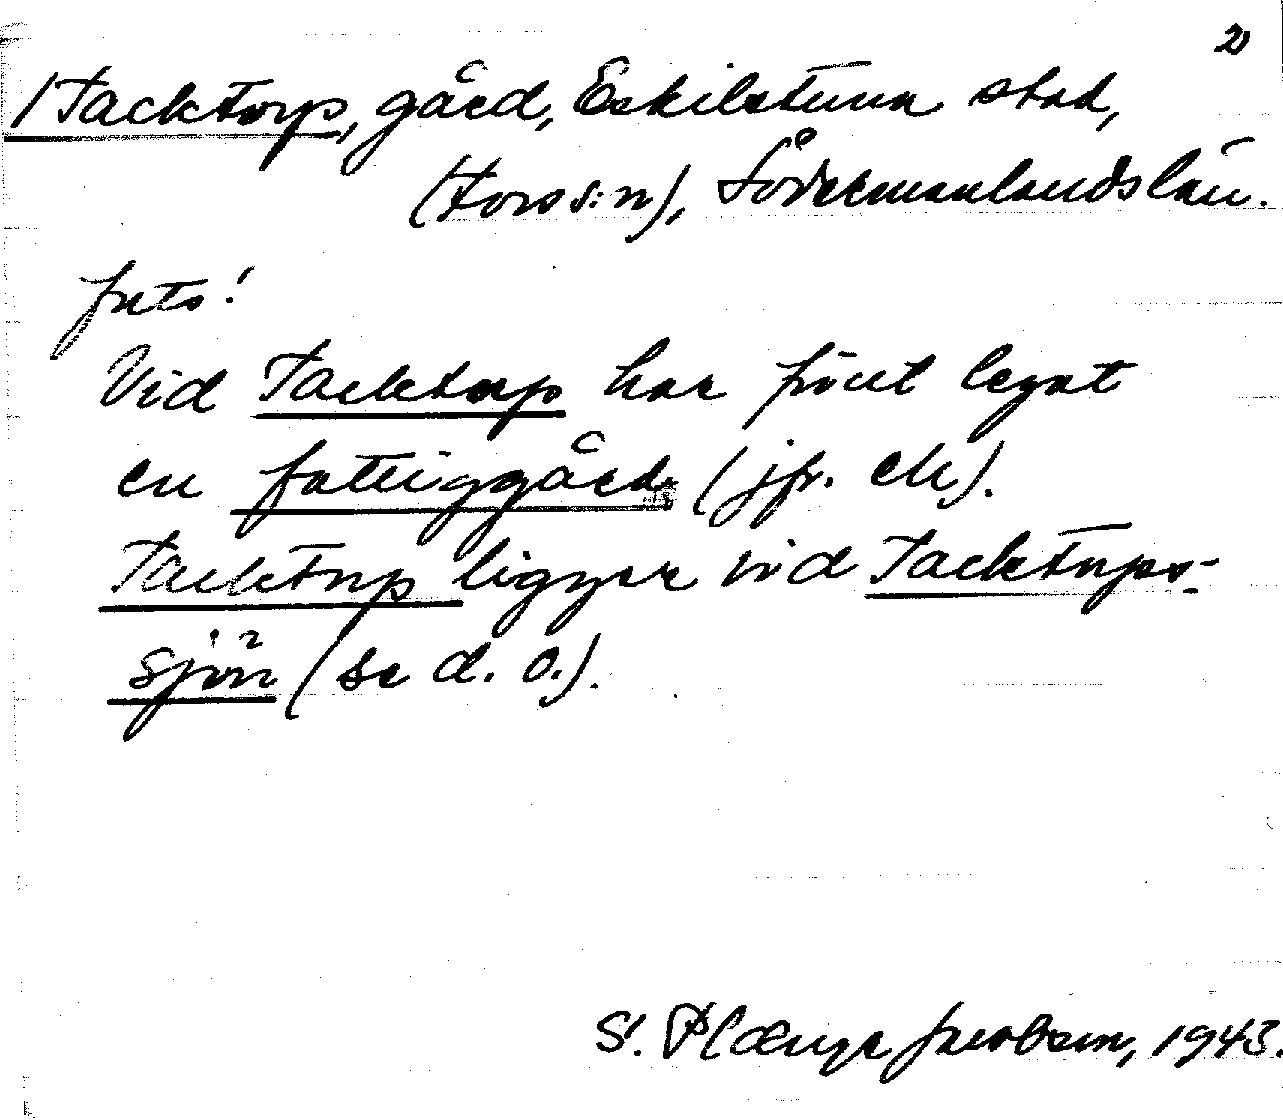 2)
/Tacktorp, gård, Eskilstuna stad,
(Fors s:n), Södermanlands län.
forts!
Vid Tacktorp har förut legat
en fattiggård (jfr. ek).
Tacktorp ligger vid Tacktorps-
sjön (se d. o.).
S. Plænge Jacobson, 1943.